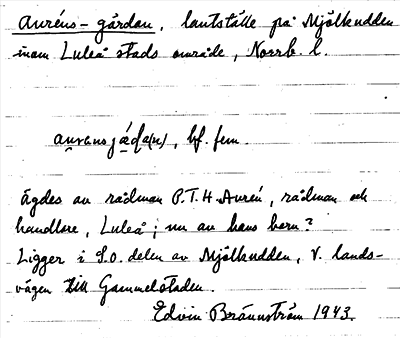 Auréns-gården, lantställe på Mjölkudden
inom Luleå stads område, Norrb. l.
aurens jǽḍa(n), bf. fem.
Ägdes av rådman P.T.H. Aurén, rådman och
handlare, Luleå; nu av hans barn?
Ligger i S.O. delen av Mjölkudden, V. lands-
vägen till Gammelstaden.
Edvin Brännström 1943.